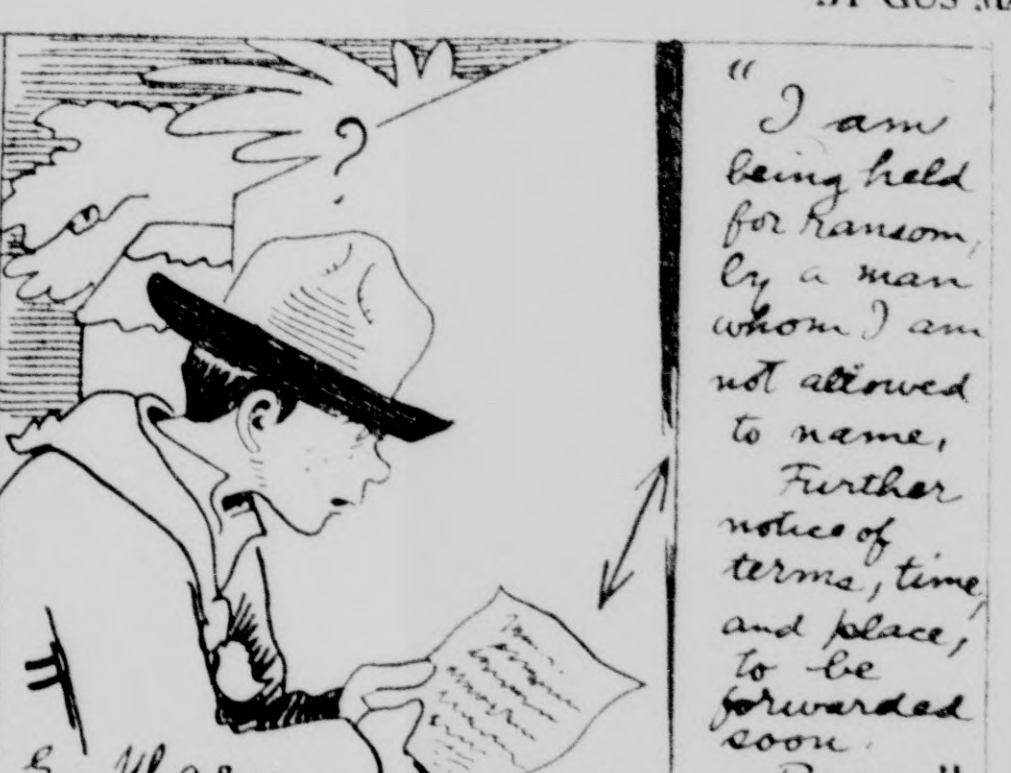 BY GUS
?
"
I am
being held
for ransom,
by a man
whom I am
not allowed
to name,
Further
notice of
terms, time,
and place,
to be
forwarded
soon.